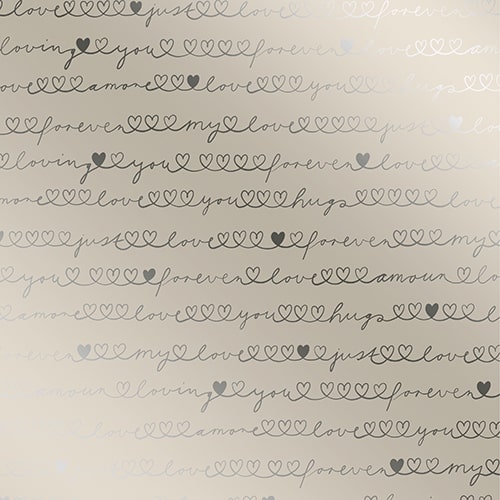 love just love forever
loving you forever love am
ove amore love you hugs
forever my love just
loving you forever love
more love you hugs love
just love forever my
you forever love amour lo
amore love you hugs
forever my love just love
amour loving you forever
love amore love you
forever my love just love forever my